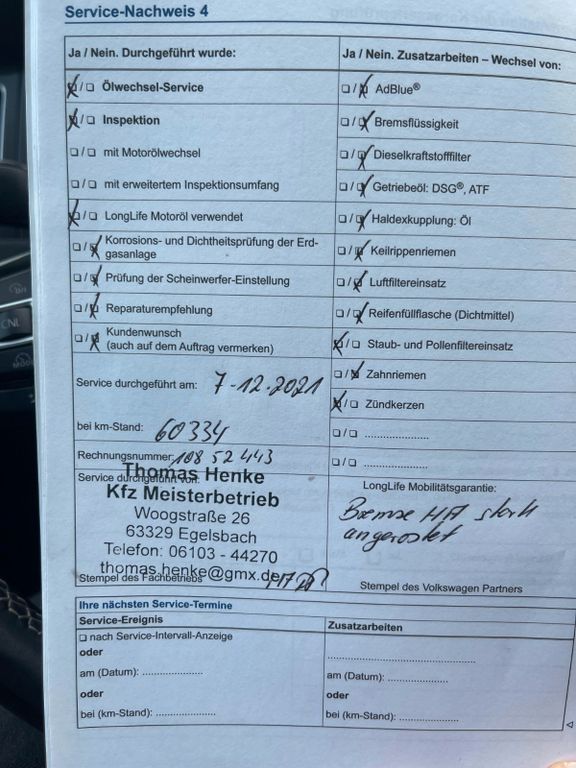 Service-Nachweis 4
Ja / Nein. Durchgeführt wurde:
☒/☐ Ölwechsel-Service
☒/☐ Inspektion
☐/☐ mit Motorölwechsel
☐/☐ mit erweitertem Inspektionsumfang
☒/☐ LongLife Motoröl verwendet
☐/☒ Korrosions- und Dichtheitsprüfung der Erd-
gasanlage
☐/☒ Prüfung der Scheinwerfer-Einstellung
☐/☒ Reparaturempfehlung
☐/☒ Kundenwunsch
(auch auf dem Auftrag vermerken)
Service durchgeführt am: 7-12.2021
bei km-Stand: 60334
Rechnungsnummer: 10852443
Service durchgeführt von:
Thomas Henke
Kfz Meisterbetrieb
Woogstraße 26
63329 Egelsbach
Telefon: 06103 - 44270
thomas.henke@gmx.de
Stempel des Fachbetriebs
Ja / Nein. Zusatzarbeiten – Wechsel von:
☐/☒ AdBlue®
☐/☒ Bremsflüssigkeit
☐/☒ Dieselkraftstofffilter
☐/☒ Getriebeöl: DSG®, ATF
☐/☒ Haldexkupplung: Öl
☐/☒ Keilrippenriemen
☐/☒ Luftfiltereinsatz
☐/☒ Reifenfüllflasche (Dichtmittel)
☒/☐ Staub- und Pollenfiltereinsatz
☐/☒ Zahnriemen
☒/☐ Zündkerzen
☐/☐ .....................
☐/☐ .....................
LongLife Mobilitätsgarantie:
Bremse HA stark
angerostet
Stempel des Volkswagen Partners
Ihre nächsten Service-Termine
Service-Ereignis
☐ nach Service-Intervall-Anzeige
oder
am (Datum): ....................
oder
bei (km-Stand): ....................
Zusatzarbeiten
..................................................
am (Datum): ....................
oder
bei (km-Stand): ....................